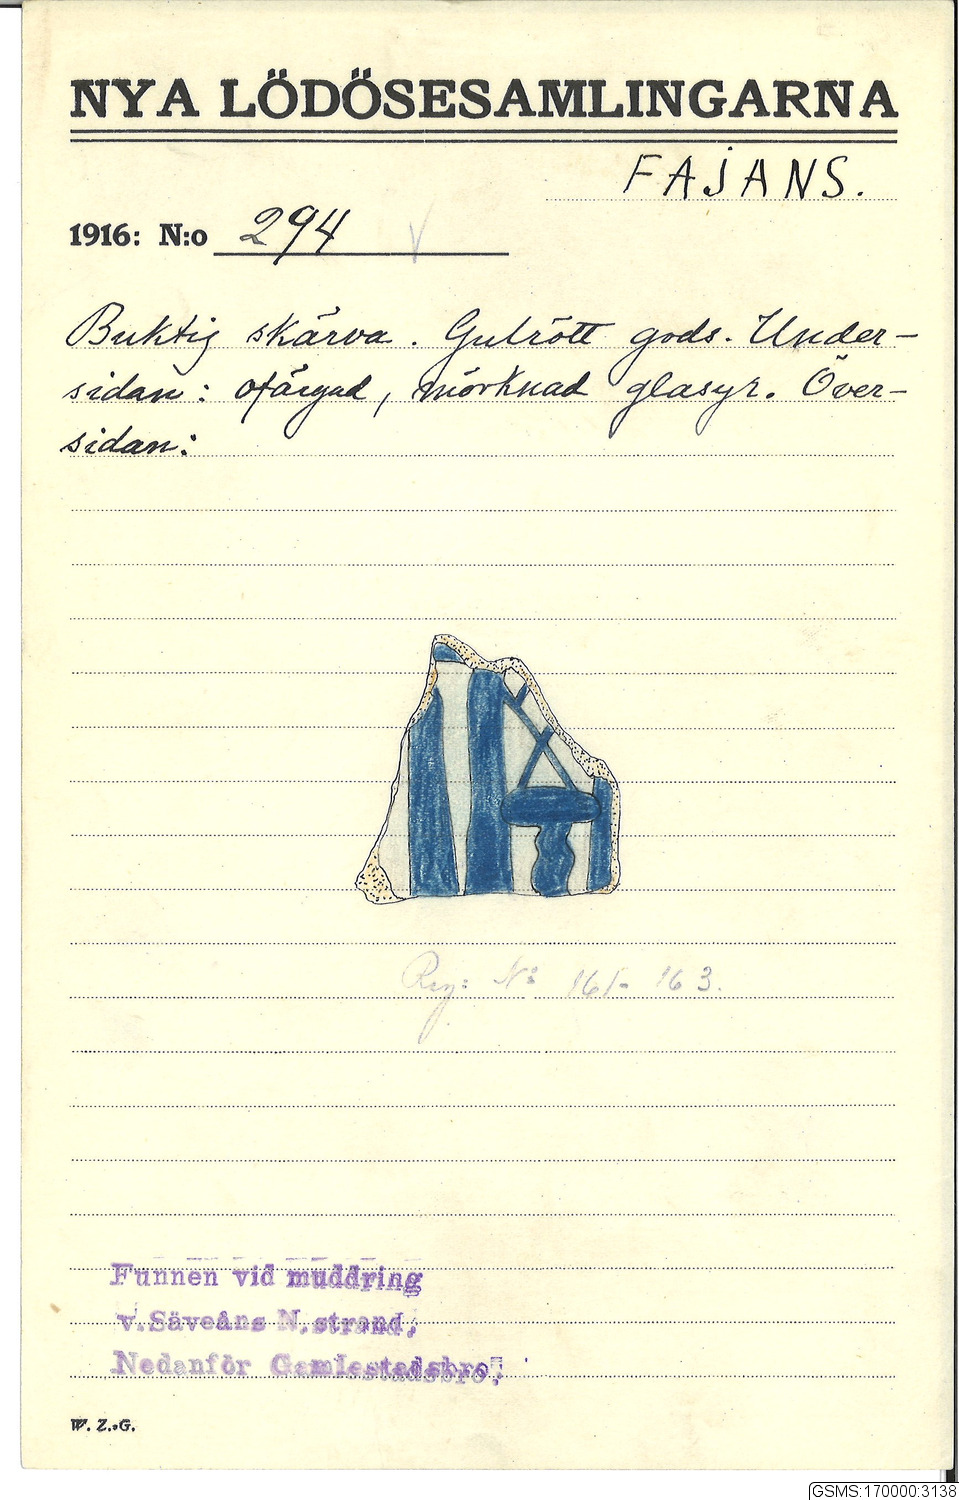 NYA LÖDÖSESAMLINGARNA
FAJANS.
1916: N:o 294
Buktig skärva. Gulrött gods. Under-
sidan: ofärgad, mörknad glasyr. Över-
sidan:
Reg: No 161-163.
Funnen vid muddring
v. Säveåns N. strand,
Nedanför Gamlestadsbro.
W. Z. G.
GSMS:170000:3138